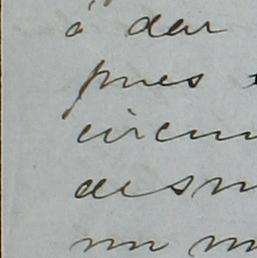 á dar
pues
circun
desm
un m